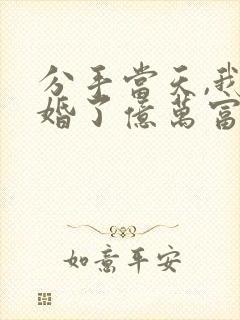 分手當天,我
婚了億萬富
如意平安